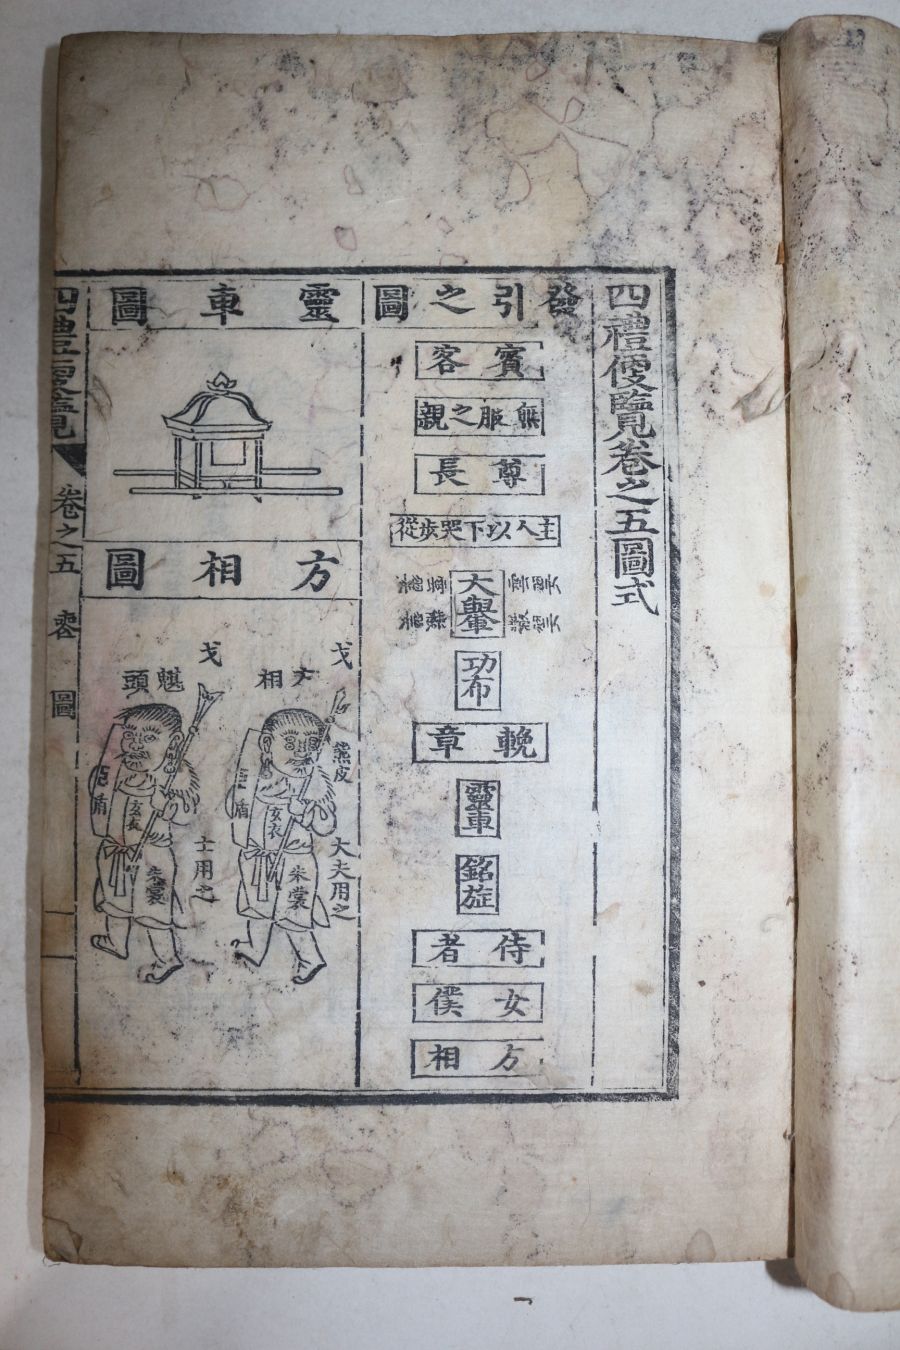 四禮便覽卷之五圖式
發引之圖
賓客
無服之親
尊長
主人以下哭步從
大轝
功布
輓章
靈車
銘旌
侍者
女僕
方相
靈車圖
方相圖
戈
方相
熊皮
玄衣
朱裳
盾
大夫用之
戈
魌頭
玄衣
朱裳
盾
士用之
四禮便覽
卷之五
喪
圖